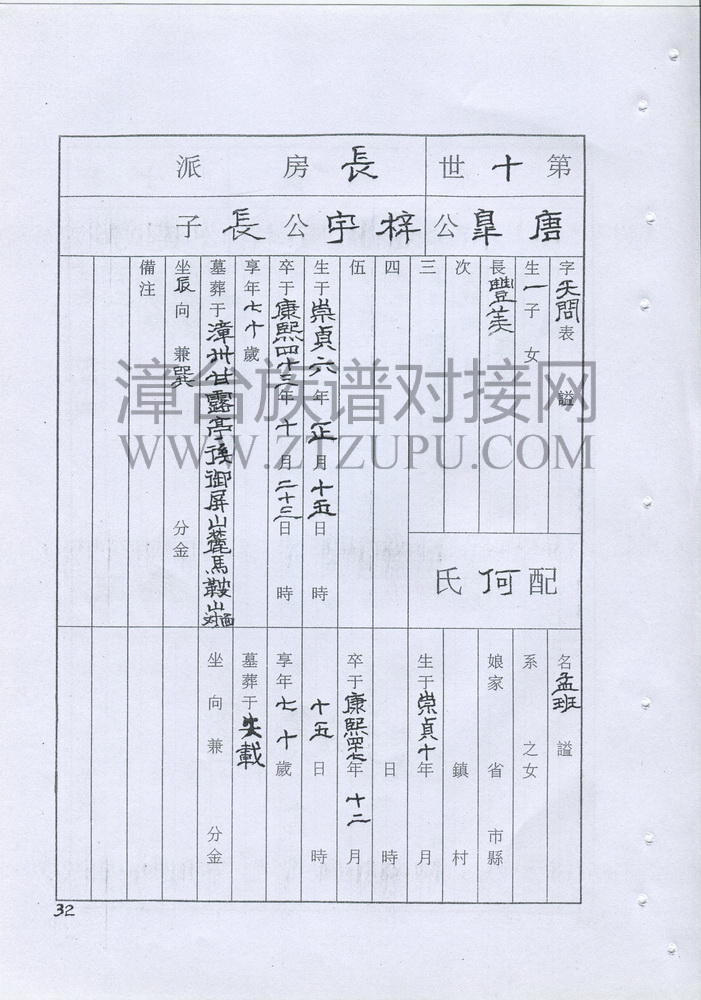 第十世 長房派
唐臯公 梓宇公長子
字天問表 諡
生一子 女
長豐美
次
三
四
伍
生于崇貞六年正月十五日 時
卒于康熙四十三年十月二十三日 時
享年七十歲
墓葬于漳州甘露亭後御屏山麓馬鞍山對面
坐辰向 兼巽 分金
備注
配何氏
名孟班諡
系 之女
娘家 省 市縣
鎮 村
生于崇貞十年 月
日 時
卒于康熙四十七年十二月
十五日 時
享年七十歲
墓葬于失載
坐 向 兼 分金
32
漳台族谱对接网
WWW.ZTZUPU.COM